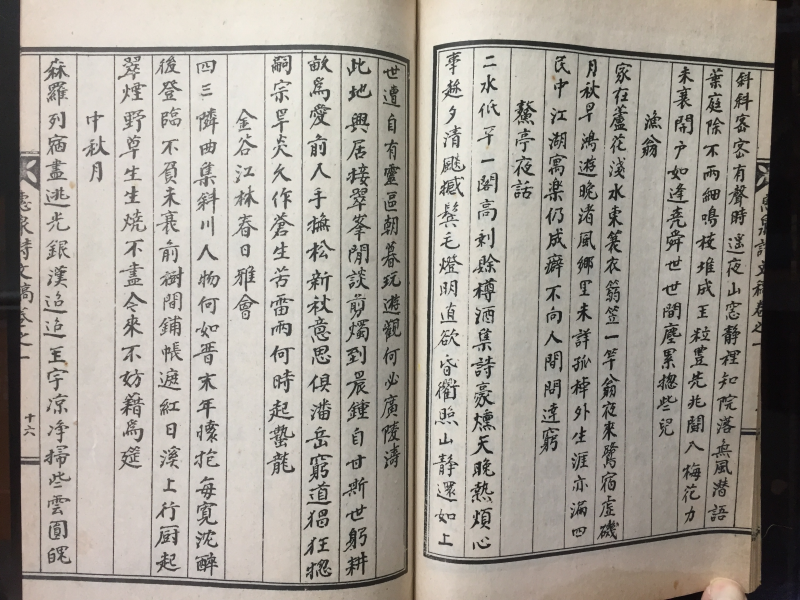 斜斜密密有聲時遥夜山窓静裡知院落無風潜語
葉庭除不雨細鳴枝堆成玉粒豊先兆開入梅花力
未衰開户如逢堯舜世世間塵累揔些兒
漁翁
家在蘆花淺水東蓑衣篛笠一竿翁夜來鷺宿虛磯
月秋早鴻遊晚渚風鄉里未詳孤棹外生涯亦滿四
民中江湖寓楽仍成癖不向人間問達窮
鰲亭夜話
二水低平一閣高剡賖樽酒集詩豪燻天晚熱煩心
事趂夕清颷撼鬂毛燈明直欲昏衢照山静還如上
世遭自有靈區朝暮玩遊觀何必廣陵濤
此地興居接翠峯閒談剪燭到晨鍾自甘斯世躬耕
畝爲愛前人手撫松新秋意思俱潘岳窮道猖狂揔
嗣宗旱炎久作蒼生苦雷雨何時起蟄龍
金谷江林春日雅會
四三隣曲集斜川人物何如晋末年懷抱每寬沈醉
後登臨不負未衰前樹間鋪帳遮紅日溪上行厨起
翠煙野草生生燒不盡今來不妨藉爲筵
中秋月
森羅列宿盡逃光銀漢迢迢玉宇凉净掃些雲圓魄
詩文稿卷之一
十六